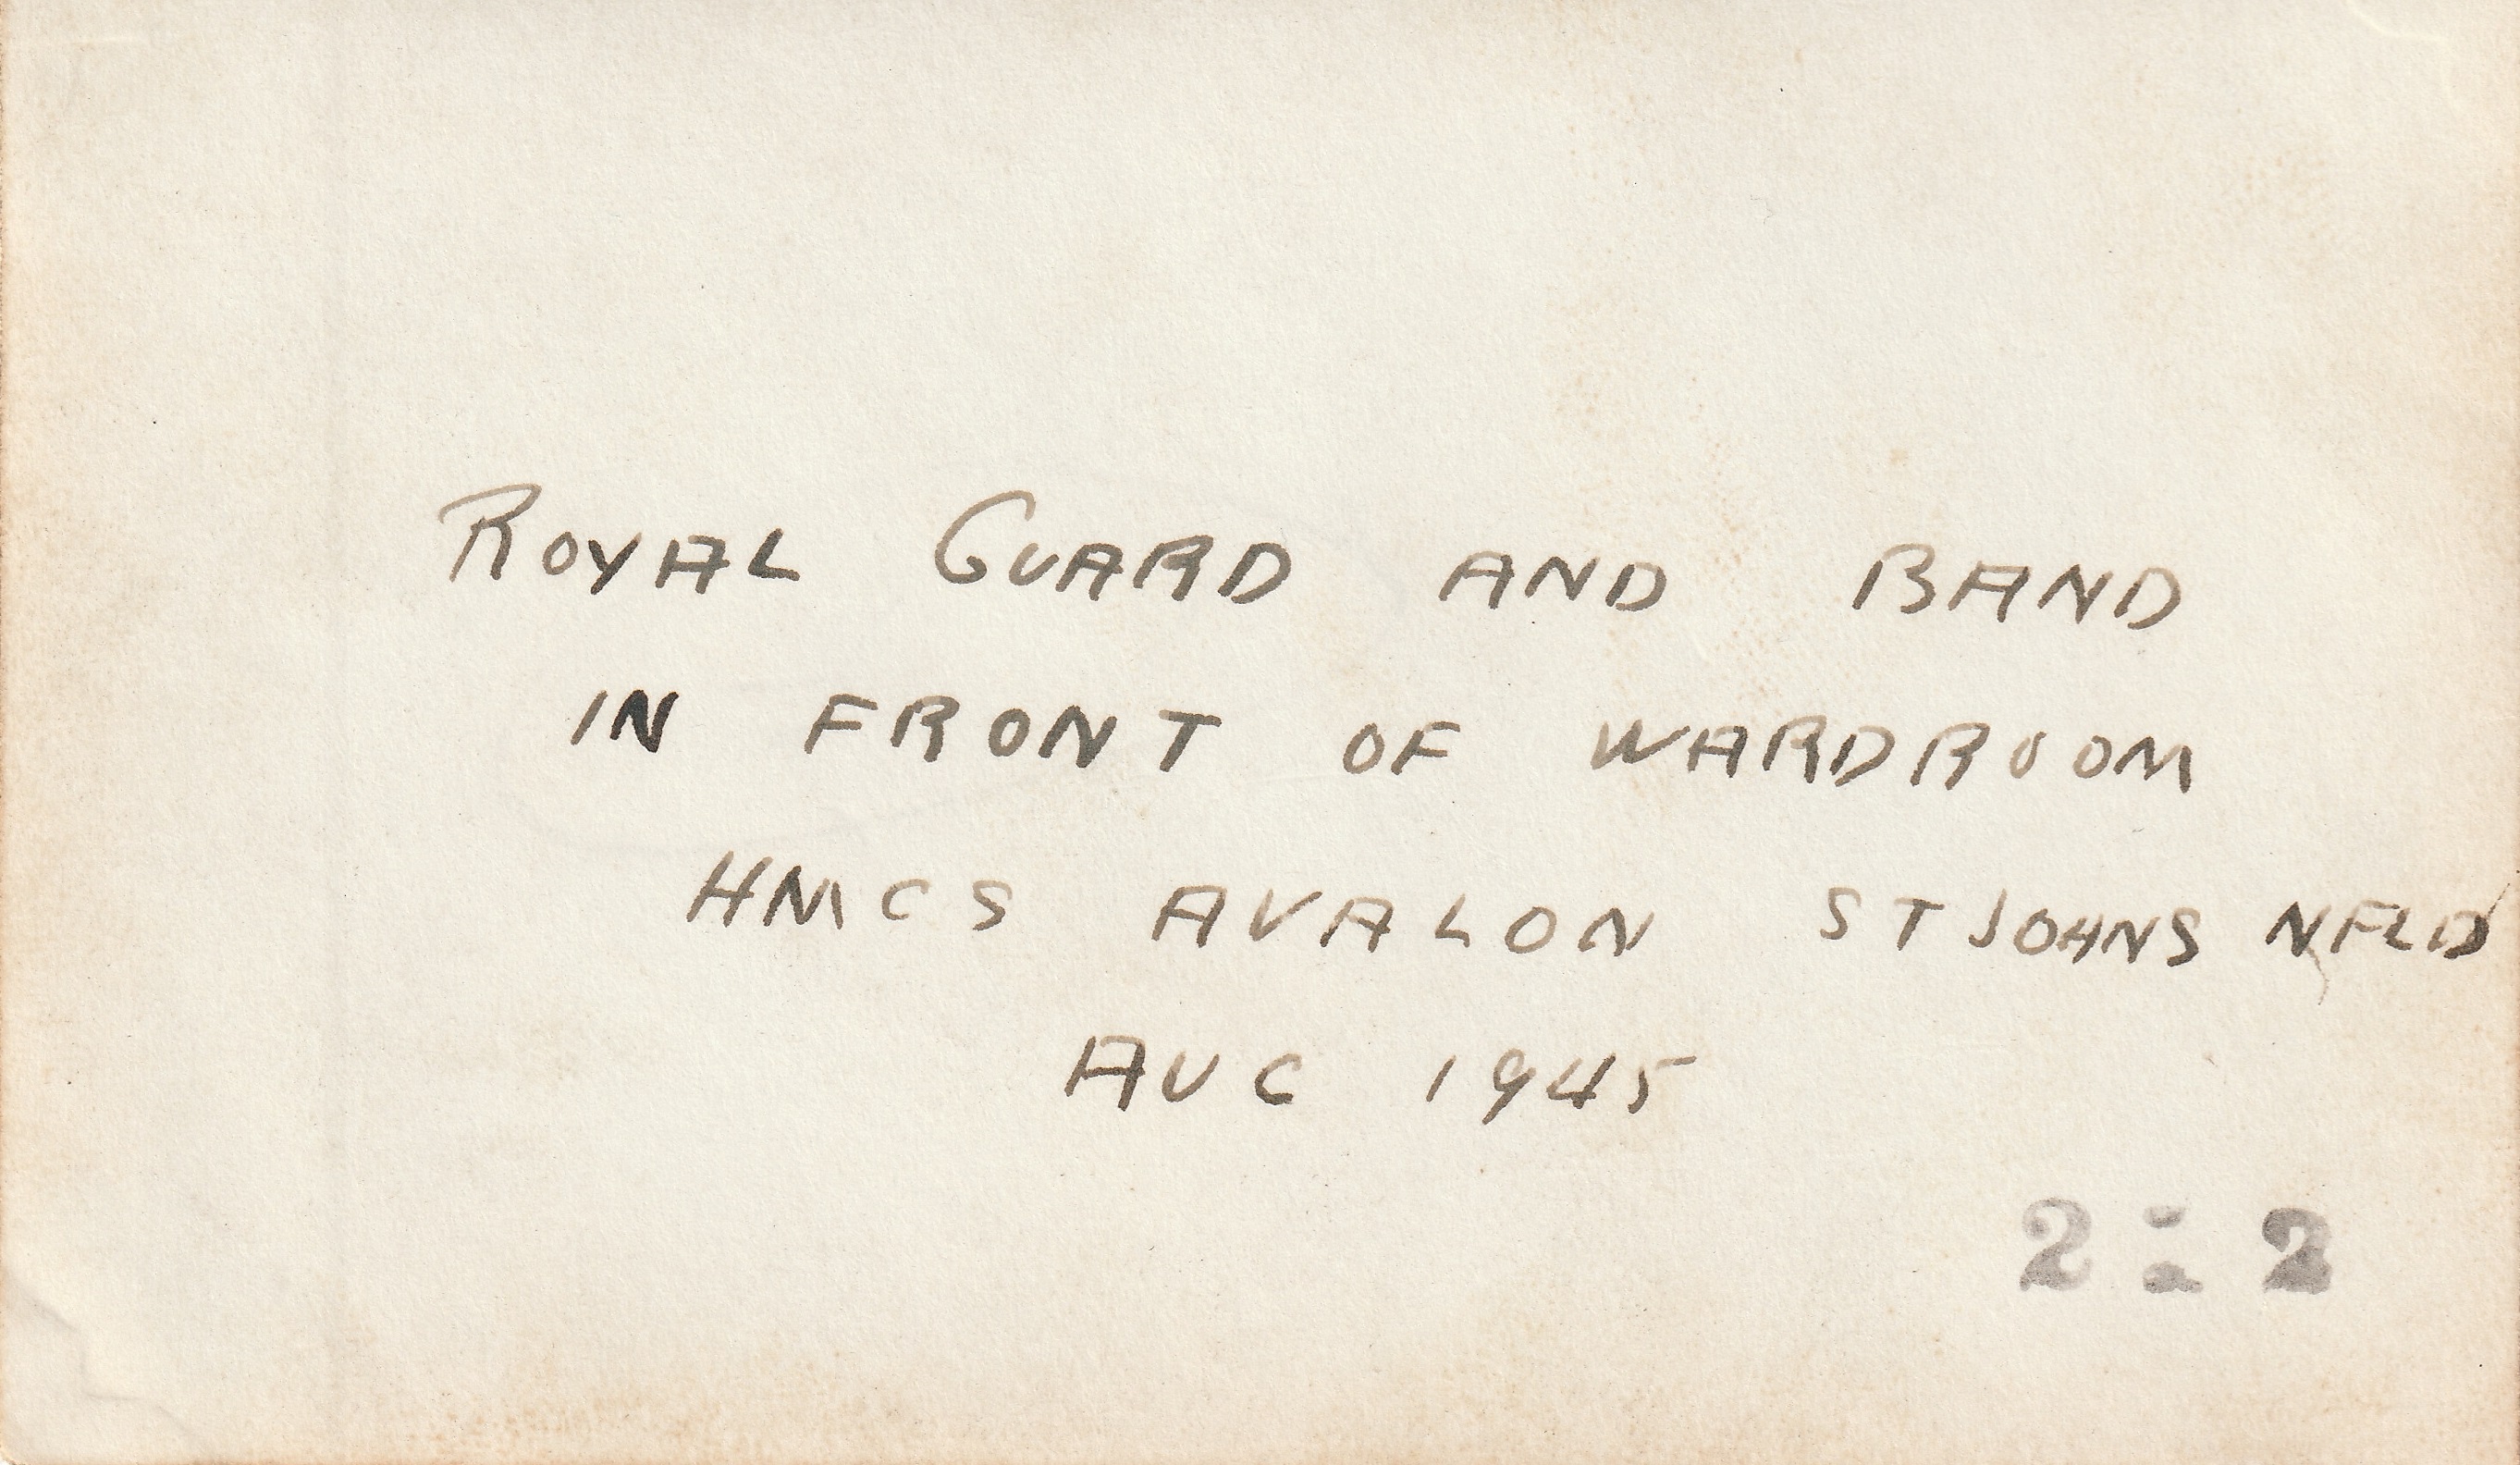 ROYAL GUARD AND BAND
IN FRONT OF WARDROOM
HMCS AVALON ST JOHNS NFLD
AUG 1945